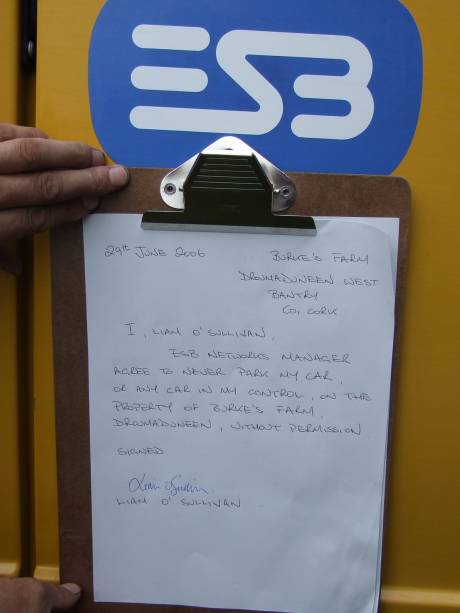 ESB
29th JUNE 2006
BURKE'S FARM
DROMADUNEEN WEST
BANTRY
CO, CORK
I, LIAM O'SULLIVAN,
ESB NETWORKS MANAGER
AGREE TO NEVER PARK MY CAR,
OR ANY CAR IN MY CONTROL, ON THE
PROPERTY OF BURKE'S FARM,
DROMADUNEEN, WITHOUT PERMISSION
SIGNED
Liam O'Sullivan
LIAM O' SULLIVAN